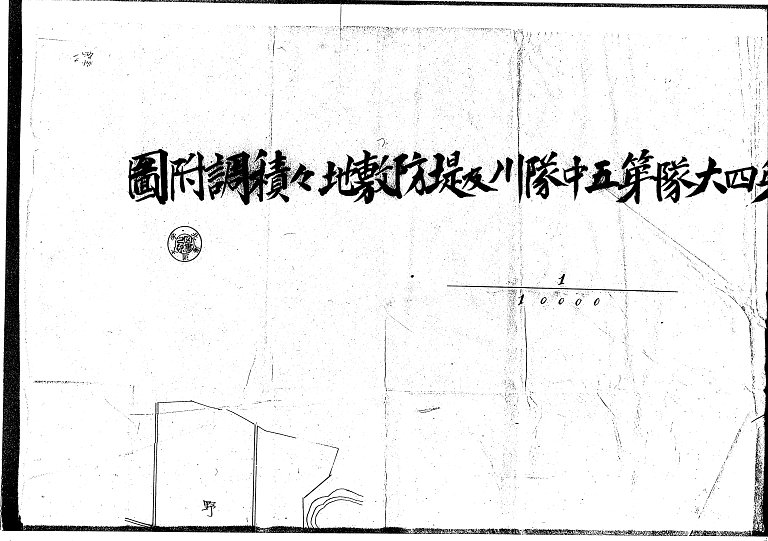 四大隊第五中隊川反堤防敷地々積調附圖
1
10000
野